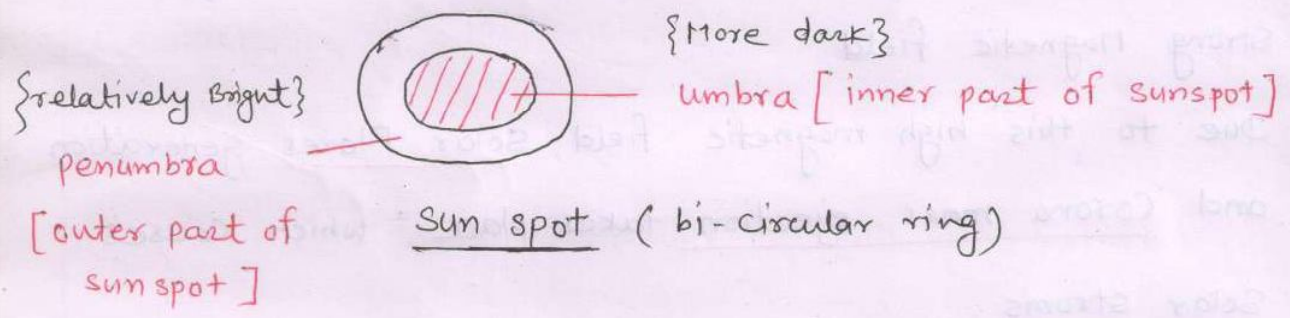 {More dark}
{relatively Bright}
umbra [inner part of sunspot]
penumbra
[outer part of
sun spot]
Sun spot (bi-circular ring)